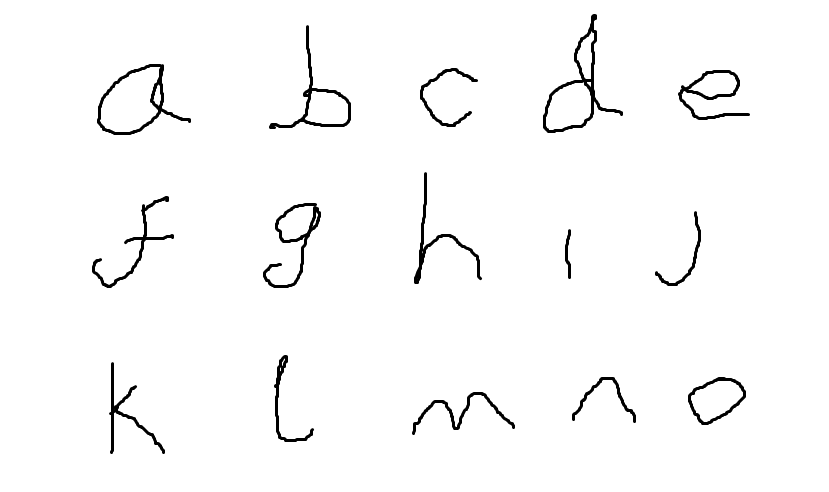 a b c d e
f g h i j
k l m n o